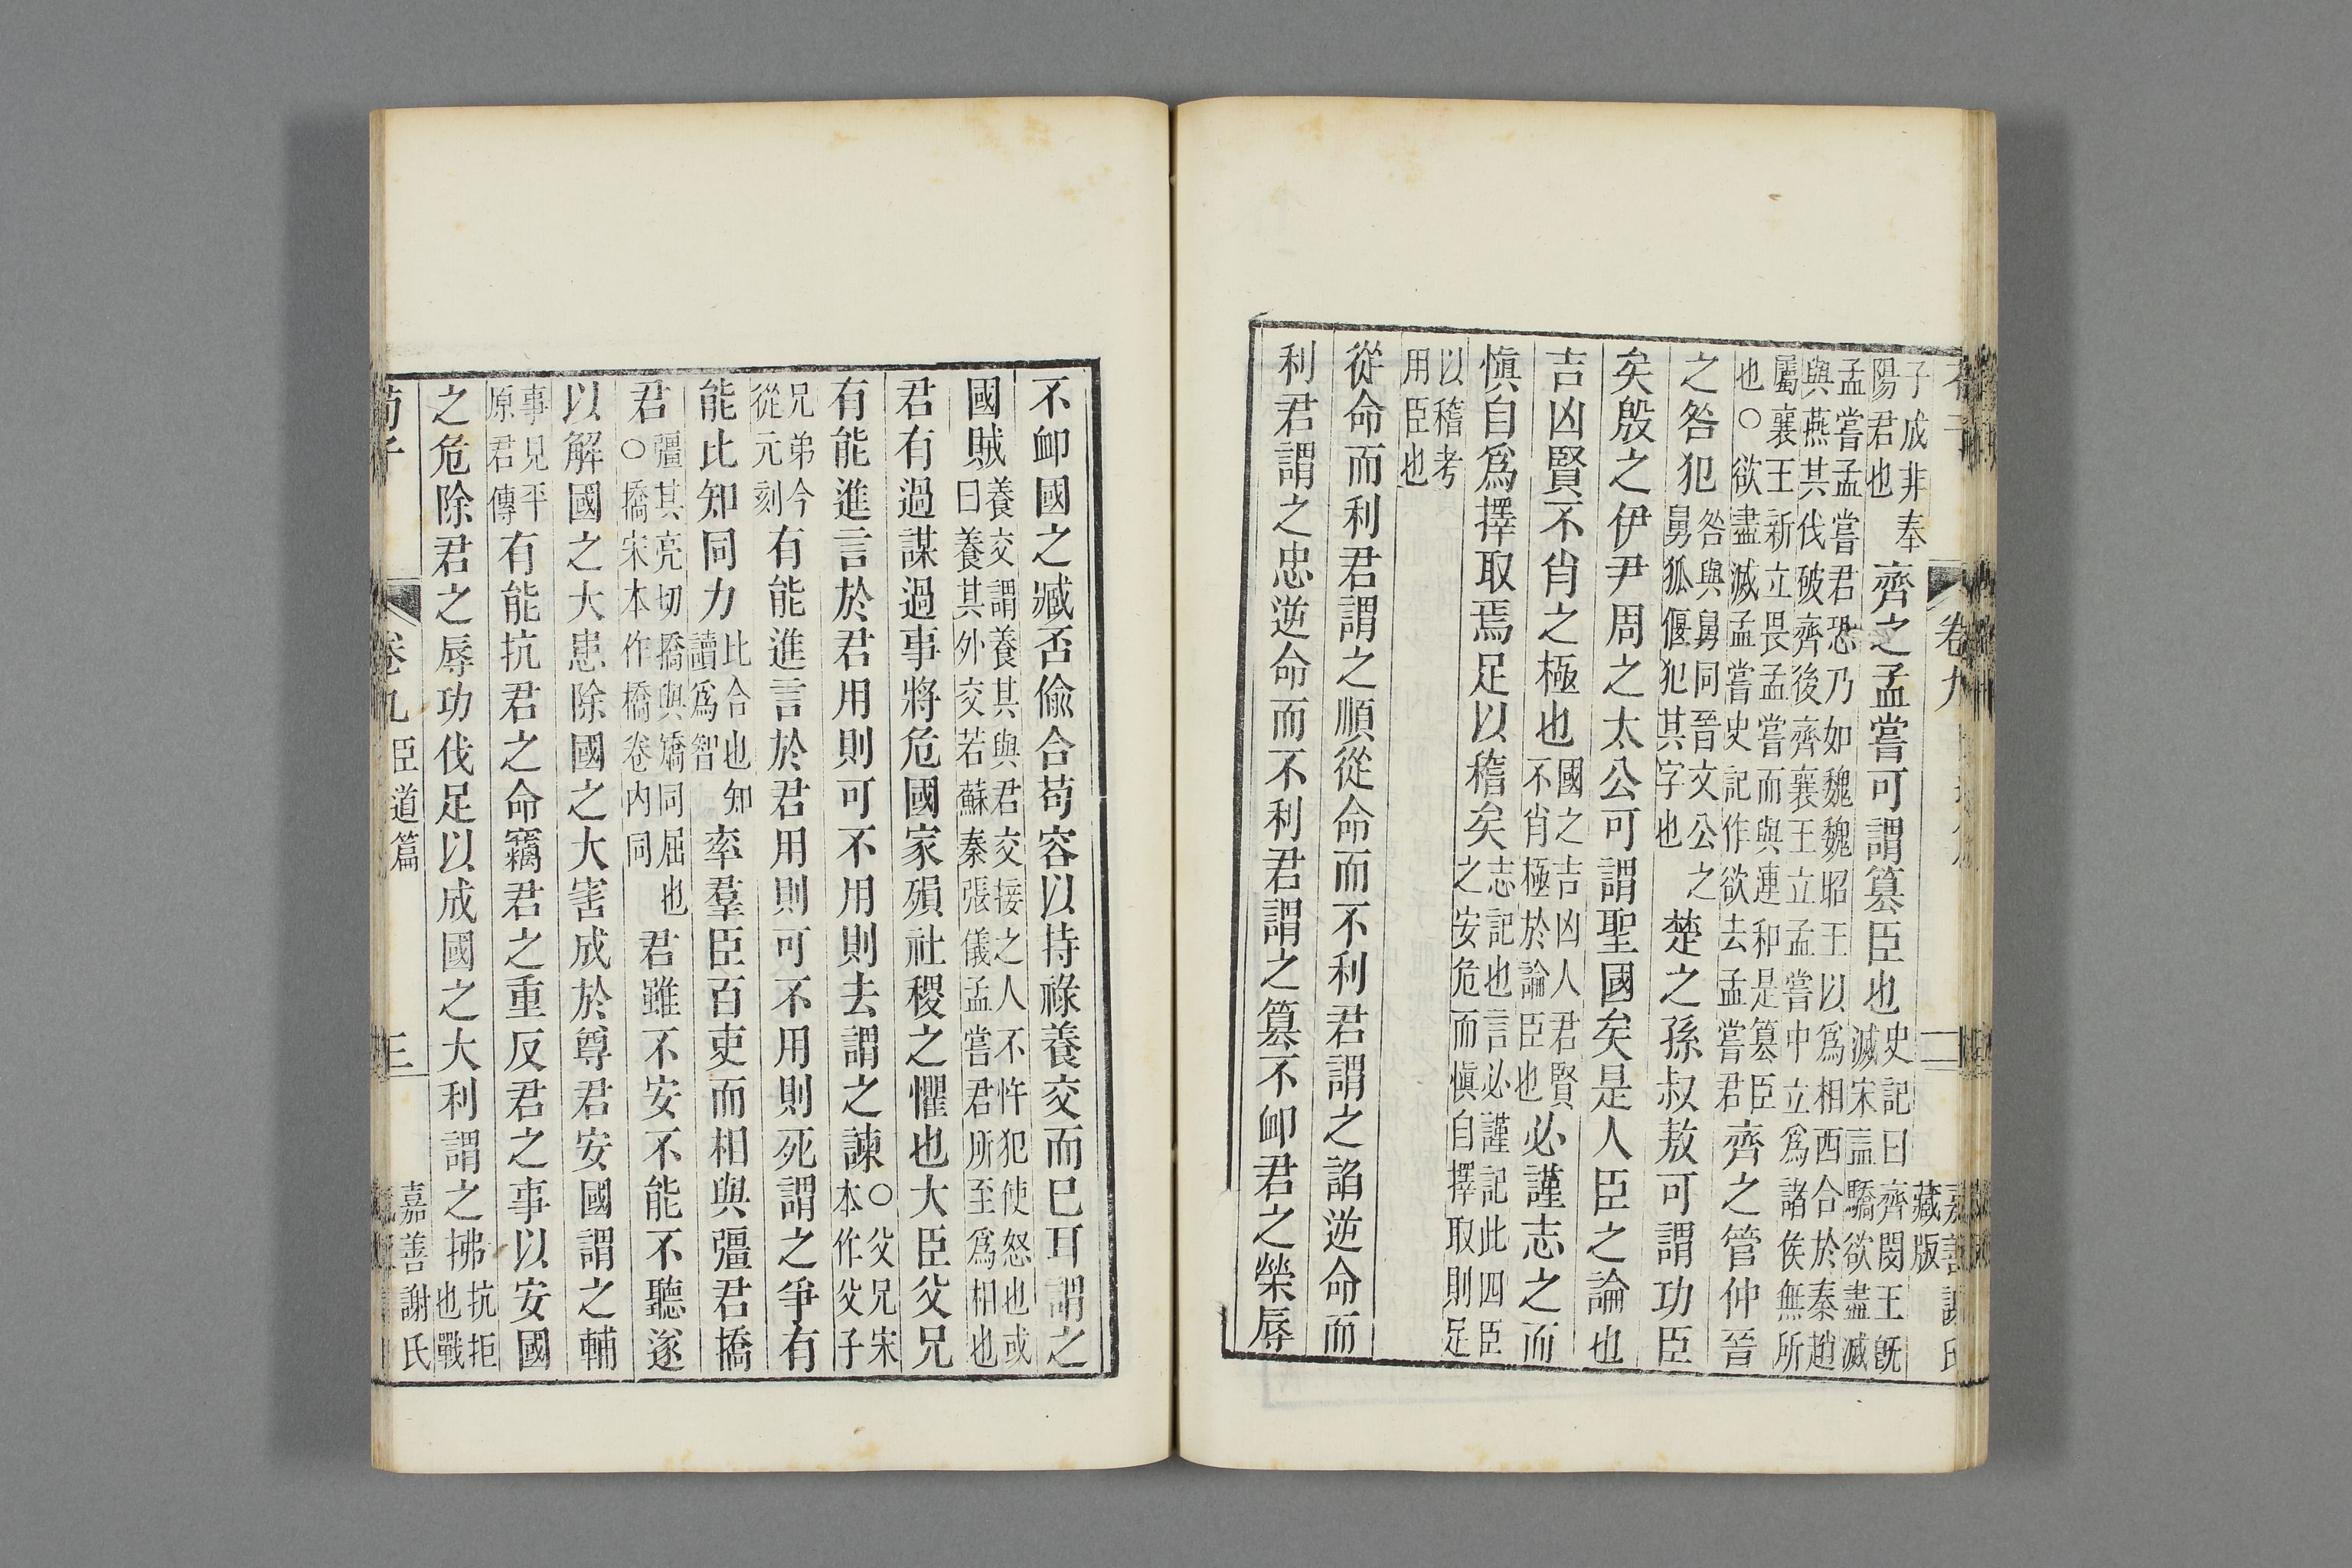 卷九
二
嘉善謝氏
藏版
子成非奉
陽君也
齊之孟嘗可謂篡臣也
史記曰齊閔王旣
滅宋益驕欲盡滅
孟嘗孟嘗君恐乃如魏魏昭王以爲相西合於秦趙
與燕其伐破齊後齊襄王立孟嘗中立爲諸侯無所
屬襄王新立畏孟嘗而與連和是篡臣
也○欲盡滅孟嘗史記作欲去孟嘗君
齊之管仲晉
之咎犯
咎與舅同晉文公之
舅狐偃犯其字也
楚之孫叔敖可謂功臣
矣殷之伊尹周之太公可謂聖國矣是人臣之論也
吉凶賢不肖之極也
國之吉凶人君賢
不肖極於論臣也
必謹志之而
愼自爲擇取焉足以稽矣
志記也言必謹記此四臣
之安危而愼自擇取則足
以稽考
用臣也
從命而利君謂之順從命而不利君謂之諂逆命而
利君謂之忠逆命而不利君謂之篡不卹君之榮辱
不卹國之臧否偸合苟容以持祿養交而巳耳謂之
國賊
養交謂養其與君交接之人不忤犯使怒也或
曰養其外交若蘇秦張儀孟嘗君所至爲相也
君有過謀過事將危國家殞社稷之懼也大臣父兄
有能進言於君用則可不用則去謂之諫
○父兄宋
本作父子
兄弟今
從元刻
有能進言於君用則可不用則死謂之爭有
能比知同力
比合也知
讀爲智
率羣臣百吏而相與彊君撟
君
彊其亮切撟與矯同屈也
○撟宋本作橋卷內同
君雖不安不能不聽遂
以解國之大患除國之大害成於尊君安國謂之輔
事見平
原君傳
有能抗君之命竊君之重反君之事以安國
之危除君之辱功伐足以成國之大利謂之拂
抗拒
也戰
荀子
卷九
臣道篇
三
嘉善謝氏